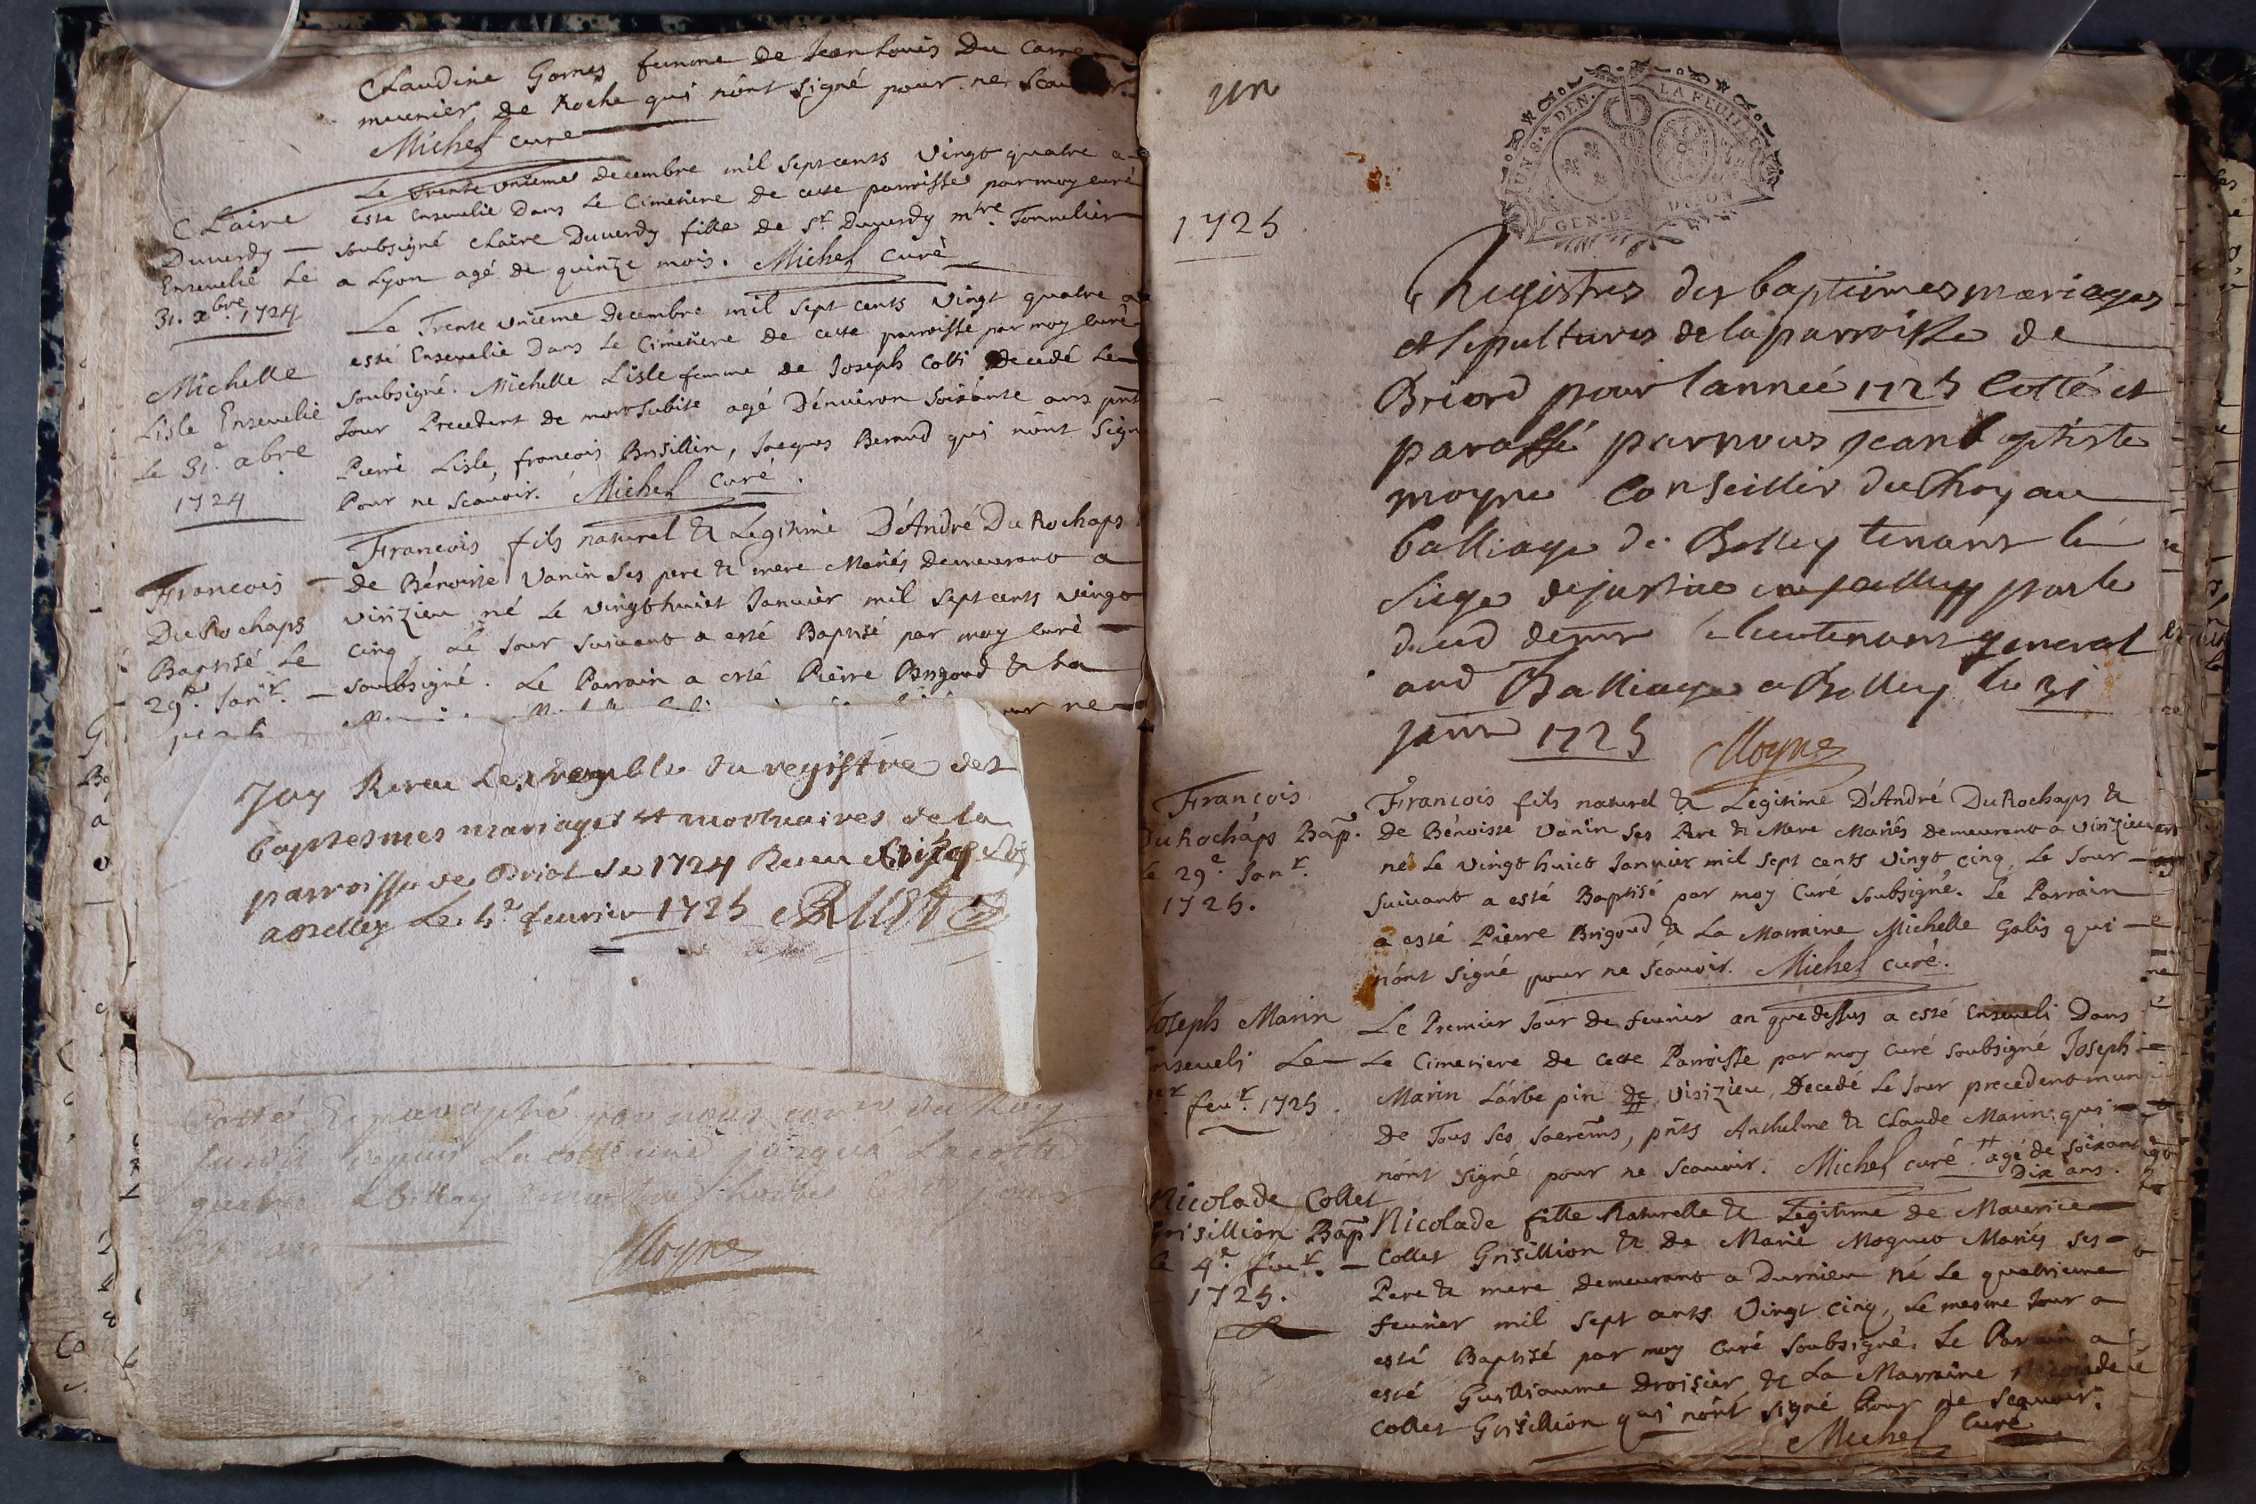 Claudine Gomes femme de Jean Louis Du Carre
munier de Roche qui nónt signé pour ne
Michel curé
Claire
Duverdy
Ensevelie Le
31. xbre. 1724
Le Trente unieme decembre mil sept cents vingt quatre a
esté Ensevelie Dans Le Cimetiere De cette parroisse par moy curé
soubsigné Claire Duverdy fille de Sr. Duverdy mtre. Tonnelier
a Lyon agé de quinze mois. Michel curé
Michelle
Lisle Ensevelie
Le 31.e xbre
1724
Le Trente unieme decembre mil sept cents vingt quatre a
esté Ensevelie Dans Le Cimetiere de cette parroisse par moy curé
soubsigné. Michelle Lisle femme de Joseph Cotti Decedé Le
Jour Precedent de mort subite agé D'environ soixante ans pnts
Pierre Lisle, francois Brisillin, Jacques Beraud qui nónt sign
Pour ne scavoir. Michel curé.
Francois
Du Rochaps
Baptisé Le
29e. Janr.
Francois fils naturel & Legitime D'André Du Rochaps
de Bénoiste Vanin ses pere & mere Mariés Demeurant a
Virizieu né Le vingt huict Janvier mil sept cents vingt
cinq, Le Jour suivant a esté Baptisé par moy curé
soubsigné. Le Parrain a esté Pierre Brigoud & La
Jay Receu Le double du registre des
baptesmes mariages et mortuaires de la
parroisse de Briot de 1724
a Belley Le. 5e fevrier 1725
Cotté & paraphé par nous conr du Roy
susdit depuis La cotte une jusqua La cotte
quatre
Moyne
un
MUNS. & DEN. LA FEUILLE
GEN. DE DIJON
1725
Registres des baptêmes mariages
et sepultures de la parroisse de
Briord pour l'année 1725 Cotté et
paraffé par nous jean baptiste
moyne Conseiller du Roy au
balliage de Belley tenant le
siege de justice par le
deceds lieutenant general
aud Balliage a Belley le 31
janvr 1725 Moyne
Francois
Du Rochaps Bap.
le 29e. Janr.
1725.
Francois fils naturel & Legitime D'André Du Rochaps &
de Bénoisse Vanin ses Pere & Mere Mariés demeurant a Virizieu
né Le vingt huict Janvier mil sept cents vingt cinq, Le Jour
suivant a esté Baptisé par moy Curé soubsigné. Le Parrain
a esté Pierre Brigoud & La Marraine Michelle Galis qui
nónt signé pour ne scavoir. Michel curé.
Joseph Marin
Enseveli Le
fevr. 1725.
Le Premier Jour de fevrier an que dessus a esté Enseveli Dans
Le Cimetiere De cette Parroisse par moy Curé soubsigné Joseph
Marin Lárbepin de Virizieu, Decedé Le Jour precedent muni
de Tous ses sacrems, pnts Anthelme & Claude Marin qui
nónt signé pour ne scavoir. Michel curé. ++ agé de soixante
Dix ans.
Nicolade Collet
Grisillion Bap
le 4e. fevr.
1725.
Nicolade fille Naturelle & Legitime de Maurice
Collet Grisillion & De Marie Magnet Mariés ses
Pere & mere demeurant a Durnieu né Le quatrieme
fevrier mil sept cents Vingt cinq, Le mesme Jour a
esté Baptisé par moy Curé soubsigné. Le Parrain a
esté Guilliaume Droisier & La Marraine Nicolade
Collet Grisillion qui nónt signé Pour ne scavoir.
Michel curé